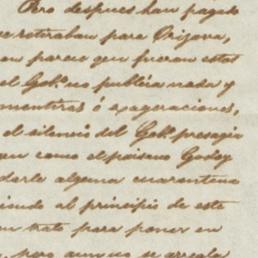 Pero despues han pagado
retiraban para Orizava,
parece que fueran estos
el Gob.º no publica nada y
mentiras ó exageraciones,
el silencio del Gob.º presagia
como el paisano Godoy
darle alguna cuarentena
al principio de este
trato para poner en
pero aunque se arregla